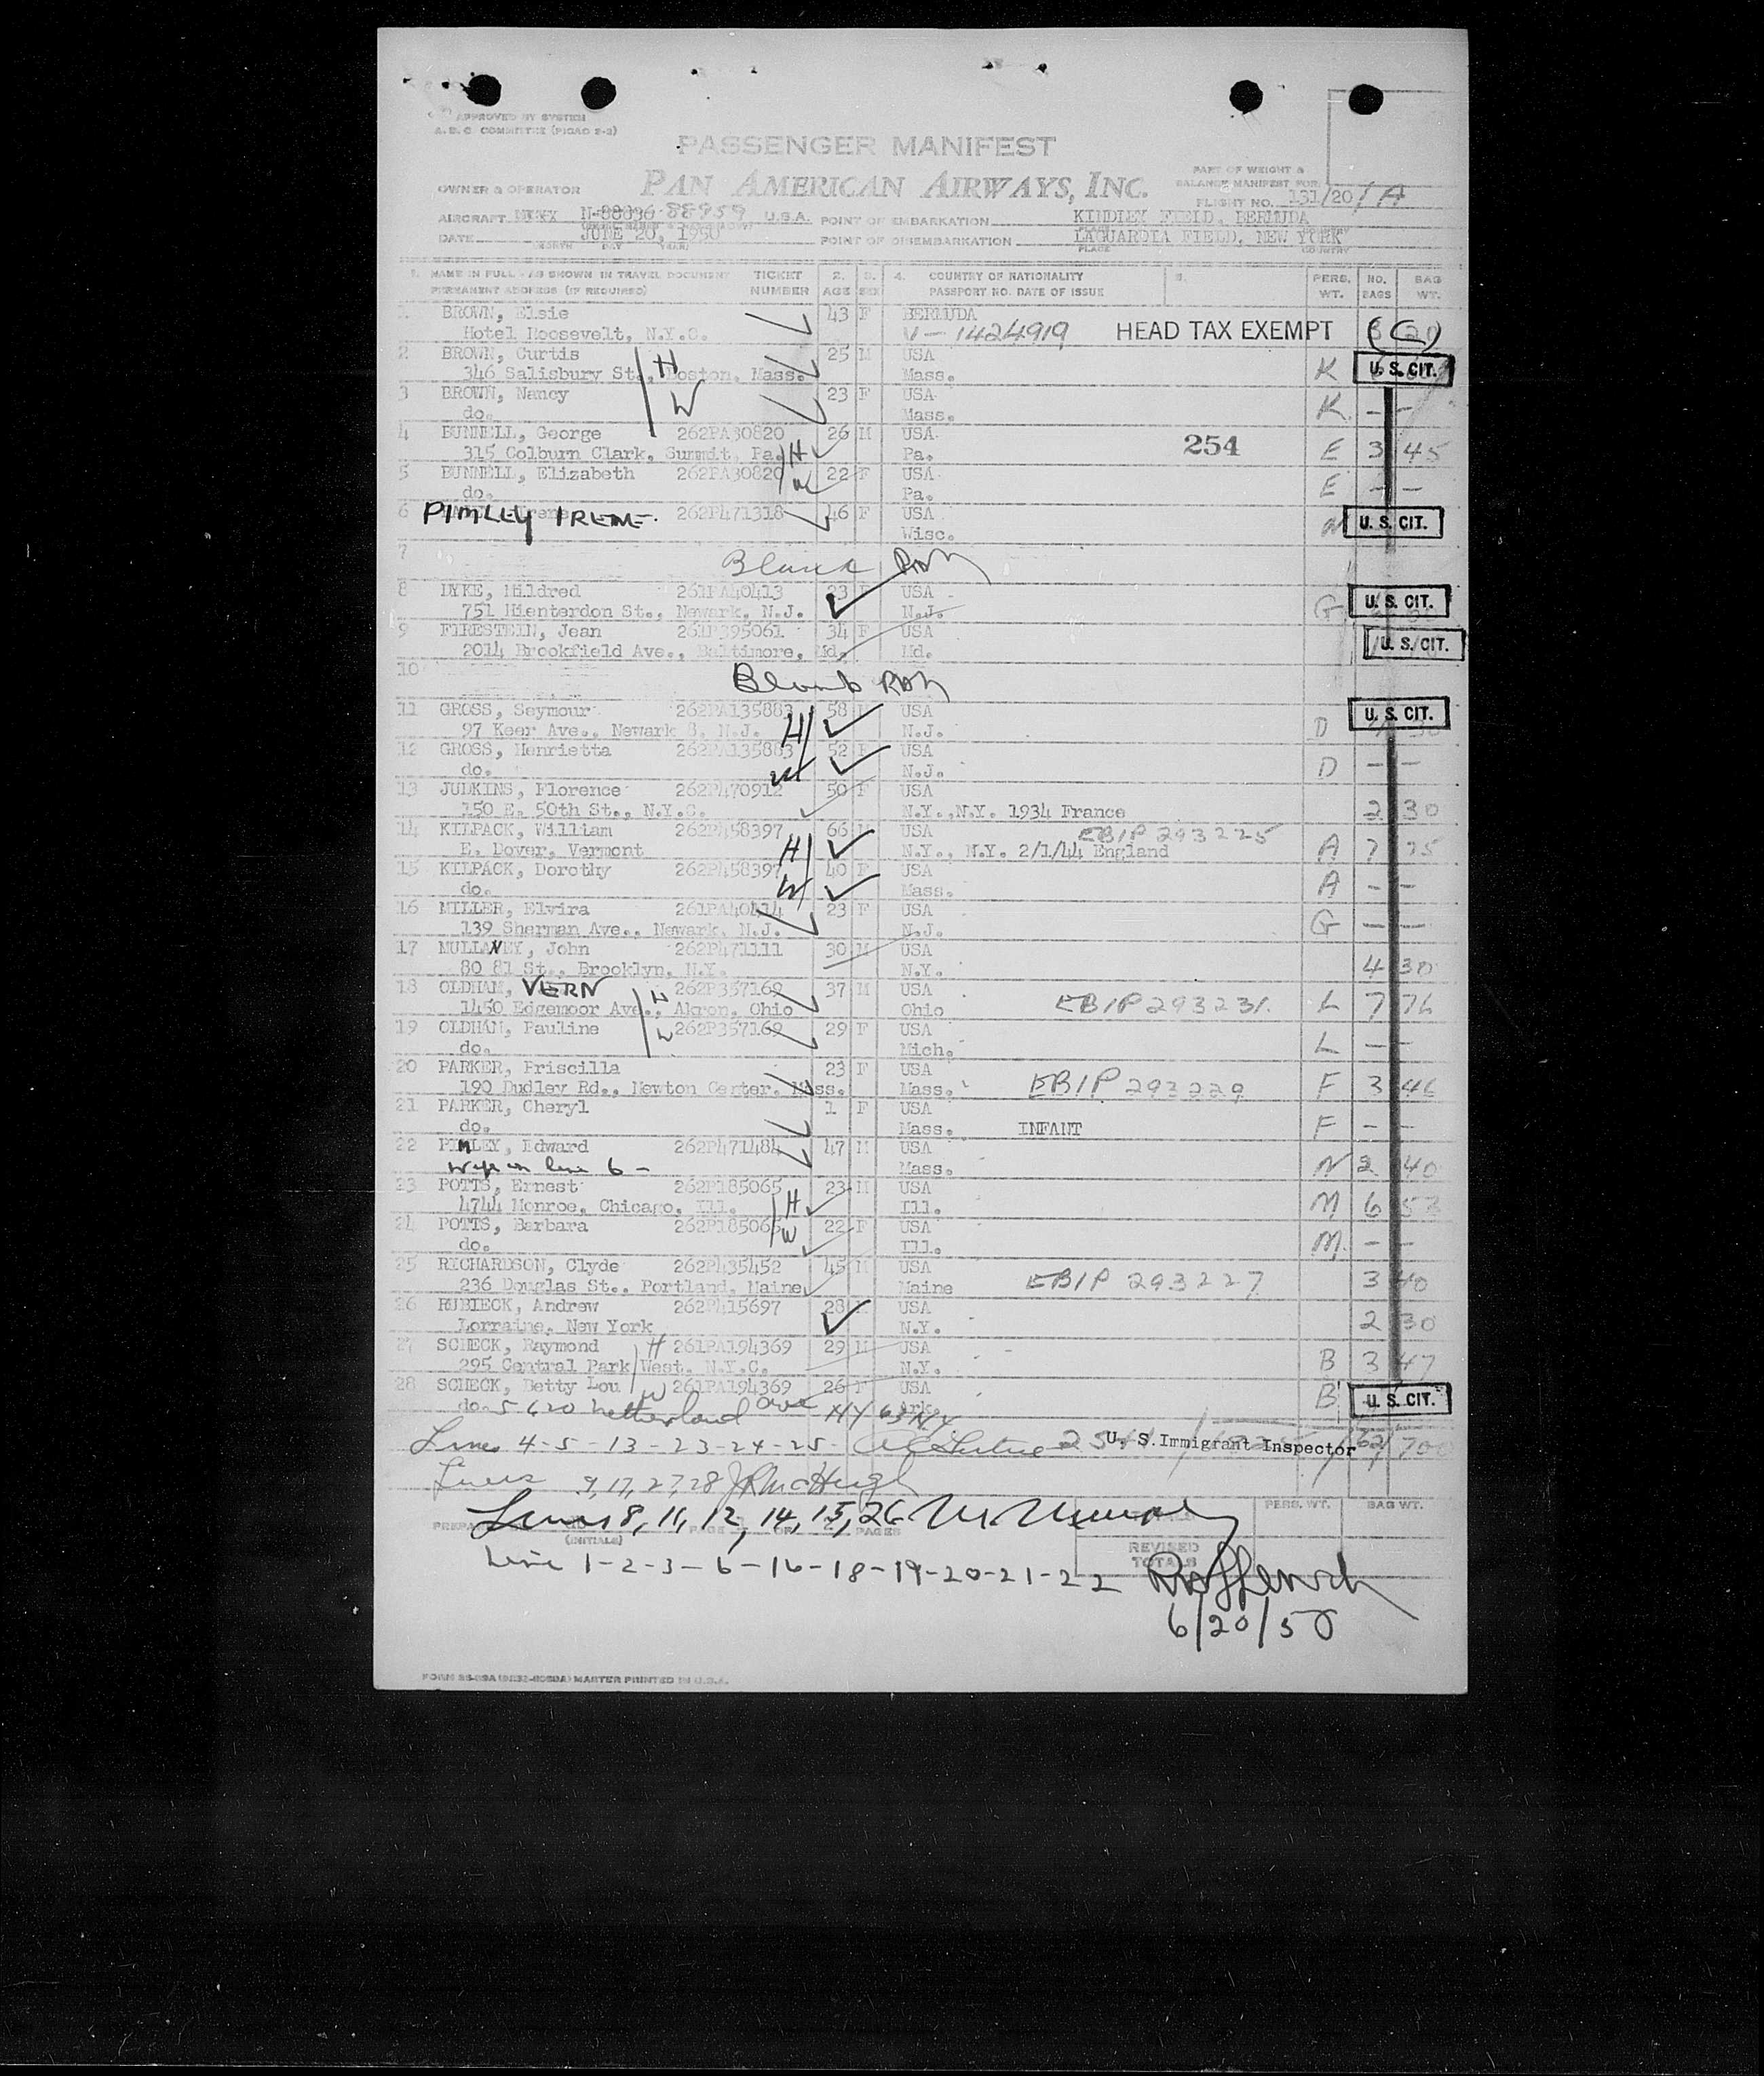 APPROVED BY SYSTEM
A.B.C. COMMITTEE (PICAO 2-2)
PASSENGER MANIFEST
PART OF WEIGHT &
BALANCE MANIFEST FOR
OWNER & OPERATOR PAN AMERICAN AIRWAYS, INC.
FLIGHT NO. 131/20/A
AIRCRAFT N-88836 88959 U.S.A. POINT OF EMBARKATION KINDLEY FIELD, BERMUDA
DATE JUNE 20, 1950 POINT OF DISEMBARKATION LAGUARDIA FIELD, NEW YORK
MONTH DAY YEAR PLACE COUNTRY
1. NAME IN FULL - AS SHOWN IN TRAVEL DOCUMENT TICKET 2. 3. 4. COUNTRY OF NATIONALITY 5. PERS. NO. BAG
PERMANENT ADDRESS (IF REQUIRED) NUMBER AGE SEX PASSPORT NO. DATE OF ISSUE WT. BAGS WT.
1 BROWN, Elsie 43 F BERMUDA
Hotel Roosevelt, N.Y.C. V-1424919 HEAD TAX EXEMPT (C)
2 BROWN, Curtis H 25 M USA
346 Salisbury St., Boston, Mass. Mass. K U. S. CIT.
3 BROWN, Nancy W 23 F USA
do. Mass. K - -
4 BUNNELL, George 262PA30820 26 M USA 254
315 Colburn Clark, Summit, Pa. H Pa. E 3 45
5 BUNNELL, Elizabeth 262PA30820 W 22 F USA
do. Pa. E - -
6 PIMLEY IRENE. 262P471318 46 F USA U. S. CIT.
Wisc. N
7 Blank RDM
8 DYKE, Mildred 261PA40413 23 F USA
751 Hienterdon St., Newark, N.J. N.J. G U. S. CIT.
9 FIRESTEIN, Jean 261P395061 34 F USA
2014 Brookfield Ave., Baltimore, Md. Md. U. S. CIT.
10 Blank RDM
11 GROSS, Seymour 262PA135883 58 USA U. S. CIT.
97 Keer Ave., Newark 8, N.J. H N.J. D
12 GROSS, Henrietta 262PA135883 52 F USA
do. W N.J. D - -
13 JUDKINS, Florence 262P470912 50 F USA
150 E. 50th St., N.Y.C. N.Y.,N.Y. 1934 France 2 30
14 KILPACK, William 262P458397 66 M USA EBIP 293225
E. Dover, Vermont H N.Y., N.Y. 2/1/44 England A 7 75
15 KILPACK, Dorothy 262P458397 40 F USA
do. W Mass. A - -
16 MILLER, Elvira 261PA40414 23 F USA
139 Sherman Ave., Newark, N.J. N.J. G - -
17 MULLANEY, John 262P471111 30 M USA
80 81 St., Brooklyn, N.Y. N.Y. 4 30
18 OLDHAM, VERN H 262P357169 37 M USA
1450 Edgemoor Ave., Akron, Ohio Ohio EBIP 293231. L 7 76
19 OLDHAM, Pauline W 262P357169 29 F USA
do. Mich. L - -
20 PARKER, Priscilla 23 F USA
190 Dudley Rd., Newton Center, Mass. Mass. EBIP 293229 F 3 46
21 PARKER, Cheryl 1 F USA
do. Mass. INFANT F - -
22 PIMLEY, Edward 262P471484 47 M USA
Wife on line 6 - Mass. N 2 40
23 POTTS, Ernest 262P185065 23 M USA
4744 Monroe, Chicago, Ill. H Ill. M 6 53
24 POTTS, Barbara 262P185065 W 22 F USA
do. Ill. M. - -
25 RICHARDSON, Clyde 262P435452 45 M USA
236 Douglas St., Portland, Maine Maine EBIP 293227 3 40
26 RUBIECK, Andrew 262P415697 28 USA
Lorraine, New York N.Y. 2 30
27 SCHECK, Raymond H 261PA194369 29 M USA
295 Central Park West, N.Y.C. N.Y. B 3 47
28 SCHECK, Betty Lou W 261PA194369 26 F USA
do. 5620 Netherland Ave NY 63 NY Ark. B U. S. CIT.
Lines 4-5-13-23-24-25- U. S. Immigrant Inspector 62 700
Lines 9, 17, 27, 28 J R McHugh
PERS. WT. BAG WT.
Lines 8, 11, 12, 14, 15, 26
(INITIALS) PAGE OF PAGES
REVISED
TOTALS
Line 1-2-3-6-16-18-19-20-21-22
6/20/50
MASTER PRINTED IN U.S.A.